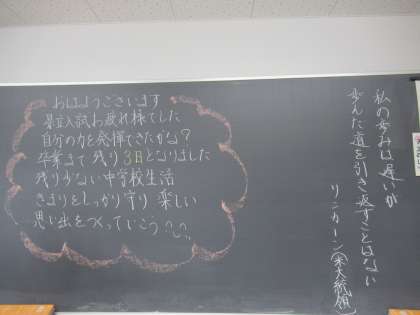 おはようございます
県立入試お疲れ様でした
自分の力を発揮できたかな?
卒業まで残り3日となりました
残り少ない中学校生活
きまりをしっかり守り楽しい
思い出をつくっていこう
私の歩みは遅いが
歩んだ道を引き返すことはない
リンカーン(米大統領)